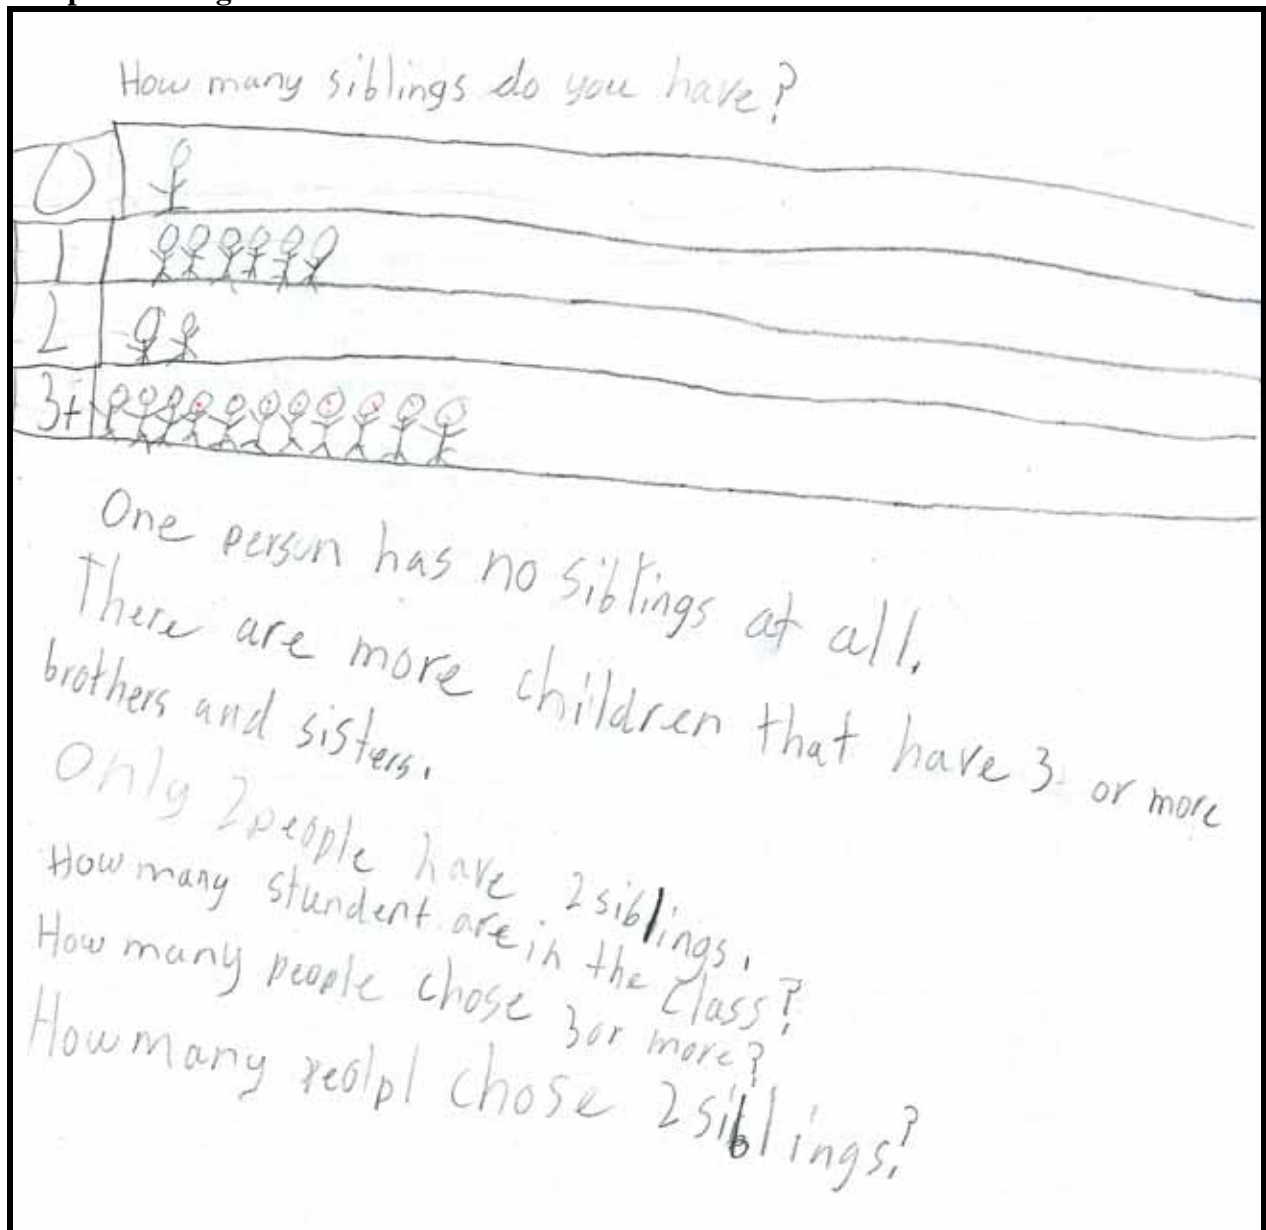 How many siblings do you have?
0
1
2
3+
One persun has no siblings at all.
There are more children that have 3 or more
brothers and sisters.
Only 2 people have 2 siblings.
How many stundent are in the Class?
How many people chose 3 or more?
How many chose 2 siblings?